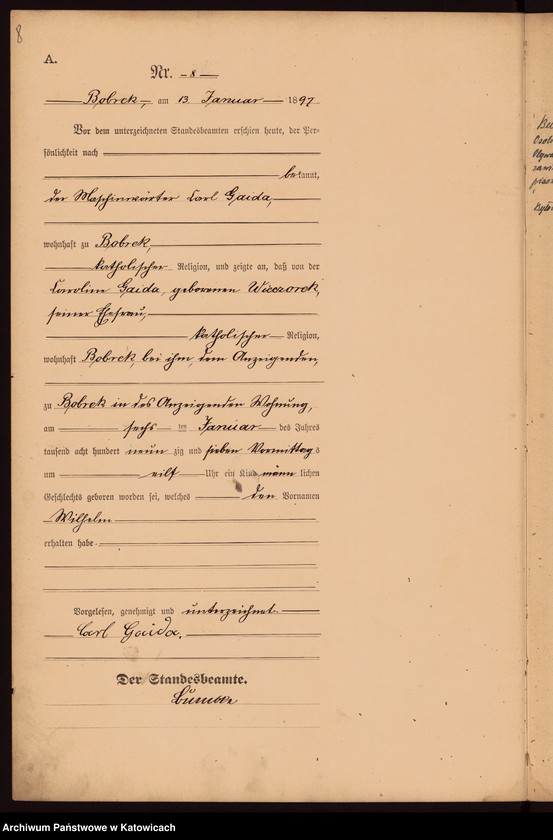 8
A.
Nr. 8
Bobrek, am 13. Januar 1897
Vor dem unterzeichneten Standesbeamten erschien heute, der Per-
sönlichkeit nach
bekannt,
der Maschinwärter Carl Gaida,
wohnhaft zu Bobrek,
katholischer Religion, und zeigte an, daß von der
Caroline Gaida, geborenen Wieczorek,
seiner Ehefrau,
katholischer Religion,
wohnhaft Bobrek, bei ihm, dem Anzeigenden,
zu Bobrek in des Anzeigenden Wohnung,
am sechs ten Januar des Jahres
tausend acht hundert neun zig und sieben Vormittags
um eilf Uhr ein Kind männ lichen
Geschlechts geboren worden sei, welches den Vornamen
Wilhelm
erhalten habe.
Vorgelesen, genehmigt und unterzeichnet.
Carl Gaida.
Der Standesbeamte.
Archiwum Państwowe w Katowicach